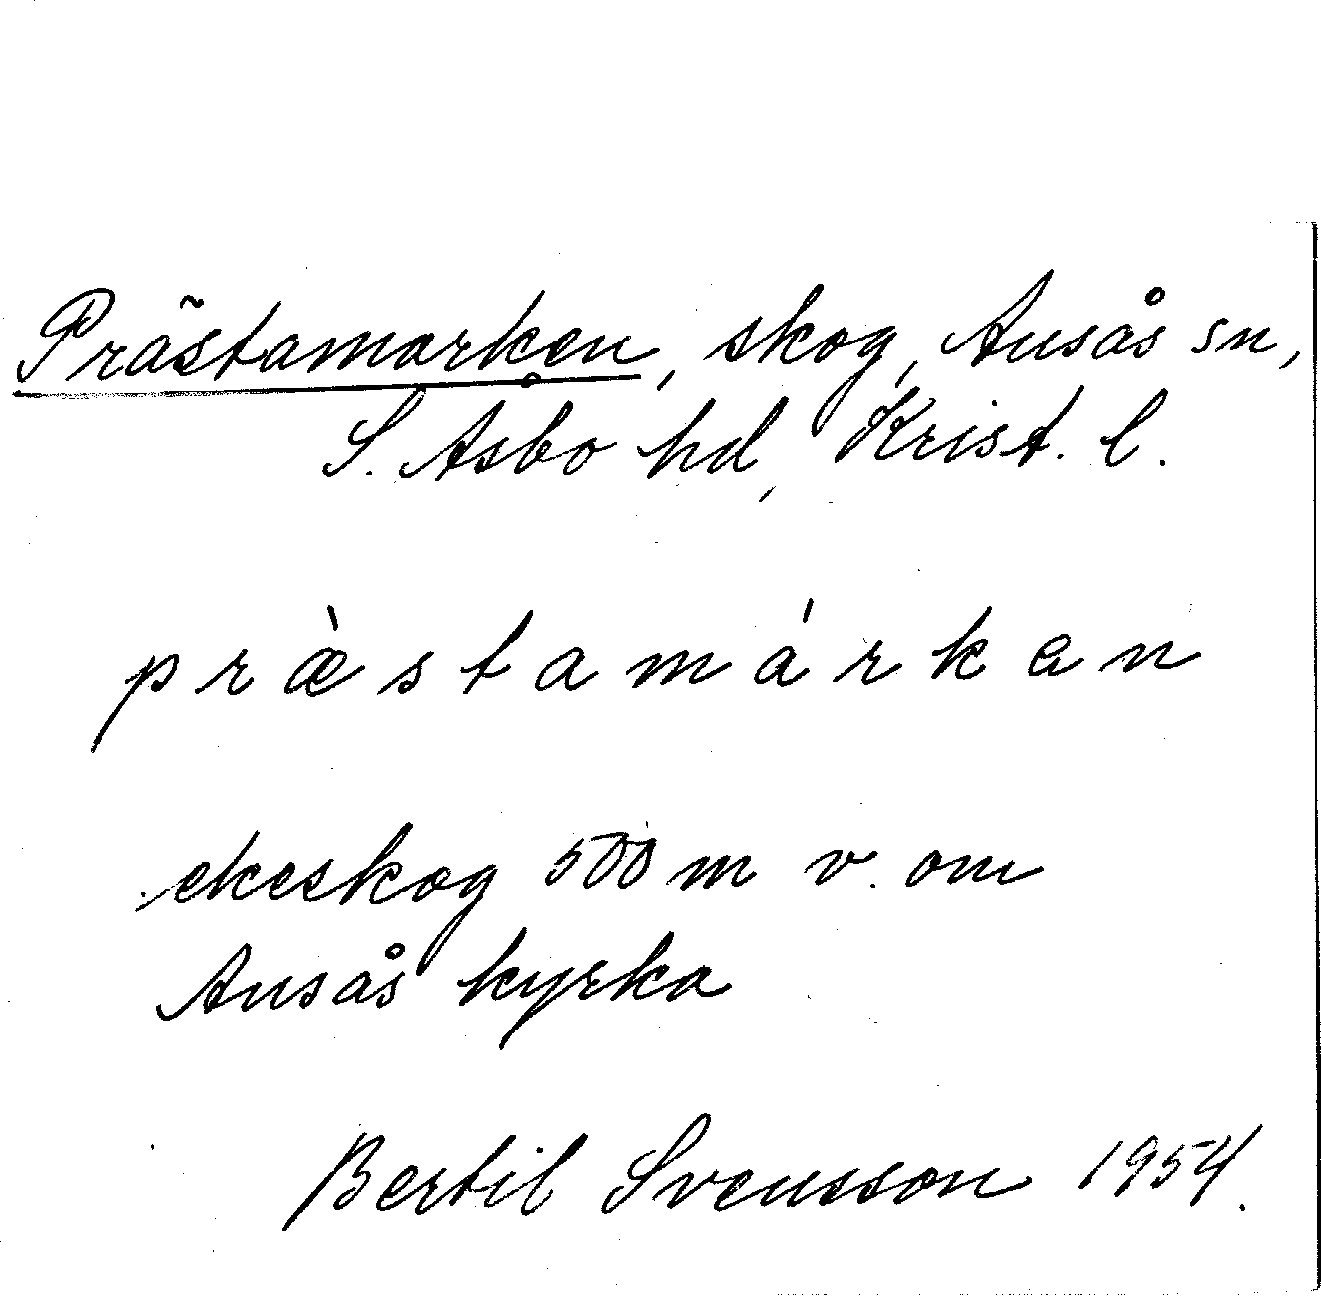 Prästamarken, skog, Ausås sn,
S. Åsbo hd, Krist. l.
prǽstamárken
ekeskog 500 m v. om
Ausås kyrka
Bertil Svensson 1954.